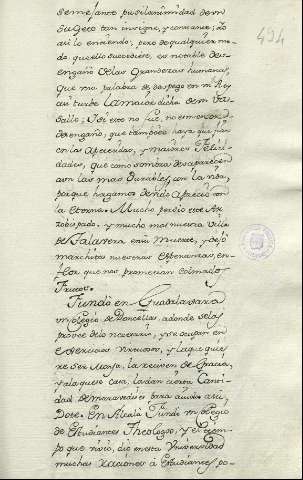 semejante pusilanimidad de un
sugeto tan insigne, y constante; Yo
asi lo entiendo; pero de qualquier mo-
do que ello sucediese, es notable des-
engaño de las grandezas humanas,
que una palabra de despego en un Rey
asi turbe la mayor dicha de un Va-
sallo; Y si esto no fue, no es menor
desengaño, que tampoco haya que fiar
en las aparentes, y mayores Felici-
dades, que como sombra desaparecen
aun las mas durables, con la vida,
porque hagamos de más aprecio con
la eterna. Mucho perdio este Ar-
zobispado, y mucho mas nuestra Villa
de Talavera en su muerte, y dejó
marchitas nuestras esperanzas, en
flor que nos prometian colmados
Frutos.
Fundó en Guadalaxara
un colegio de Doncellas, adonde se las
provee de lo necesario, y se ocupan en
exercicios virtuosos, y la que quie-
re ser Monja, la reciben de gracia,
y a la que se casa, la dan cierta Canti-
dad de maravedis para ayuda a su
Dote. En Alcalá Fundó un colegio
de Estudiantes Theologos, y el tiem-
po que vivio, dio en esta Universidad
muchas raciones a Estudiantes po-
494